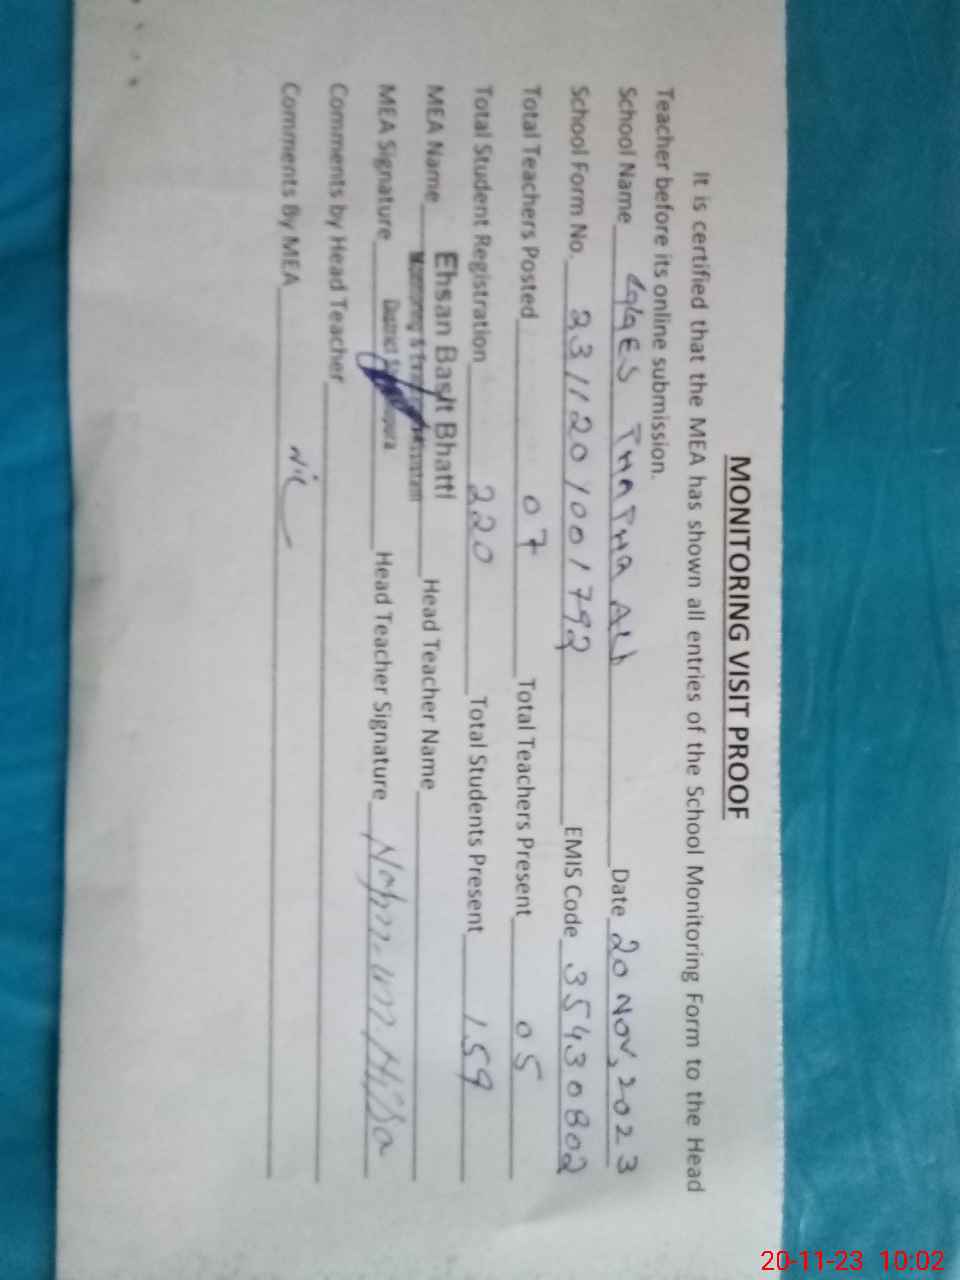 MONITORING VISIT PROOF
It is certified that the MEA has shown all entries of the School Monitoring Form to the Head
Teacher before its online submission.
School Name GGES THATHA Date 20 Nov, 2023
School Form No. 231120 1001792 EMIS Code 35430802
Total Teachers Posted 07 Total Teachers Present 05
Total Student Registration 220 Total Students Present 159
Ehsan Basit Bhatti
MEA Name Monitoring & Assistant Head Teacher Name
District
MEA Signature Head Teacher Signature
Comments by Head Teacher
Comments By MEA
20-11-23 10:02